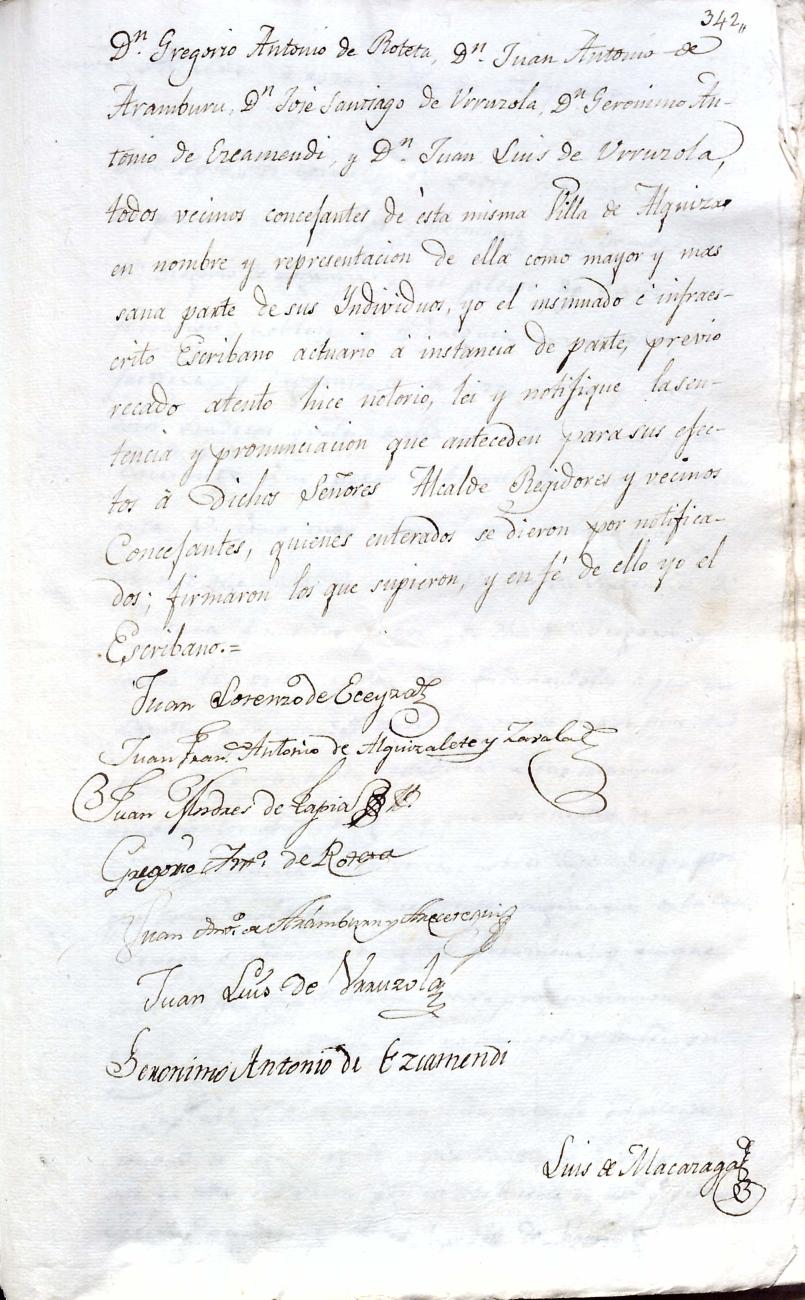 342,,
Dn. Gregorio Antonio de Roteta, Dn. Juan Antonio de
Aramburu, Dn José Santiago de Urruzola, Dn Geronimo An-
tonio de Ezcamendi, y Dn. Juan Luis de Urruzola,
todos vecinos concejantes de ésta misma Villa de Alquiza,
en nombre y representacion de ella como mayor y mas
sana parte de sus Individuos, yo el insinuado é infraes-
crito Escribano actuario á instancia de parte, previo
recado atento hice notorio, lei y notifique la sen-
tencia y pronunciacion que anteceden para sus efec-
tos á Dichos Señores Alcalde Rejidores y vecinos
Concejantes, quienes enterados se dieron por notifica-
dos; firmaron los que supieron, y en fé de ello yo el
Escribano.=
Juan Lorenzo de Eceyza
Juan Fran.co Antonio de Alquizalete y Zavala
Juan Andres de Tapia
Gregorio Antto. de Roteta
Juan Anto. de Arámburu y
Juan Luis de Urruzola
Geronimo Antonio de Ezcamendi
Luis de Macazaga